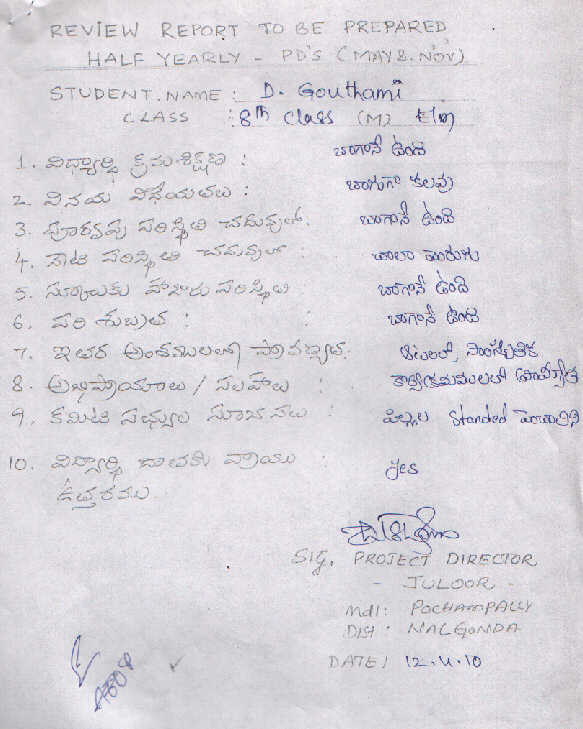 REVIEW REPORT TO BE PREPARED
HALF YEARLY - PD'S (MAY & NOV)
STUDENT. NAME : D. Gouthami
CLASS : 8th Class (M) E/m
1. విద్యార్థి క్రమశిక్షణ : బాగానే ఉంది
2. వినయ విధేయతలు : బాగుగా కలవు
3. పూర్వపు పరిస్థితి చదువులో. బాగానే ఉంది
4. నాటి పరిస్థితి చదువులో : చాలా మెరుగు
5. స్కూలుకు హాజరు పరిస్థితి బాగానే ఉంది
6. పరి శుభ్రత : బాగానే ఉంది
7. ఇతర అంశములలో ప్రావణ్యత. ఆటలలో, సాంస్కృతిక
8. అభిప్రాయాలు / సలహాలు : కార్యక్రమములలో
9. కమిటి సభ్యుల సూచనలు : పిల్లల Standed
10. విద్యార్థి దాతకు వ్రాయు : yes
ఉత్తరము
SIG. PROJECT DIRECTOR
- JULOOR -
Mdl: POCHAMPALLY
Dist : NALGONDA
DATE: 12.4.10